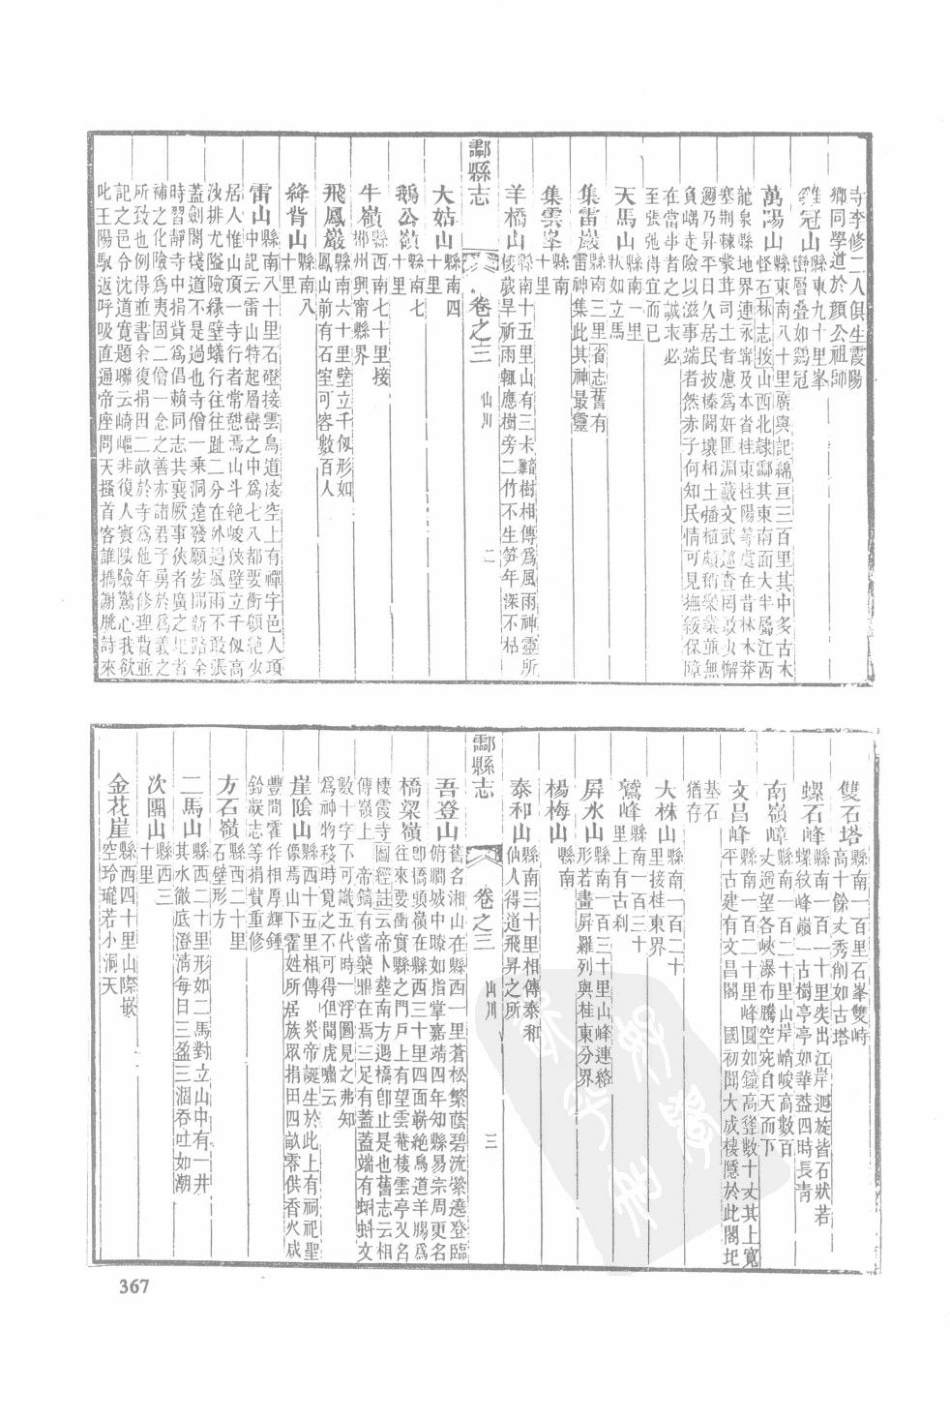 寺李修二人俱生霞陽
鄉同學道於顏公祖師
雞冠山縣東九十里峯
巒層疊如鷄冠
萬陽山縣東南八十里廣輿記綿亘三百里其中多古木
怪石林志按山西北隸酃其東南面大半屬江西
龍泉縣地界連永寧及本省桂東桂陽等處在昔林木莽
塞荆棘蒙茸司土者慮爲奸匪淵藪文武巡查罔敢少懈
邇乃昇平日久居民披榛闢壤相土播植頗稍樂業並無
負嵎走險以滋事端者然赤子何知民情可見撫綏保障
在當事者之誠求必
至張弛得宜而已
天馬山縣南一里
狀如立馬
集雷巖縣南三里省志舊有
雷神集此其神最靈
集雲峯縣南
十里
羊橋山縣南十五里山有三木籍樹相傳爲風雨神靈所
棲歲旱祈雨輒應樹旁二竹不生笋年深不枯
酃縣志 卷之三 山川 二
大姑山縣南四
十里
鵝公嶺縣南七
十里
牛嶺縣西南七十里接
郴州興甯縣界
飛鳳巖縣南六十里壁立千仭形如
鳳山前有石室可客數百人
絳背山縣南八
十里
雷山縣南八十里石磴接雲鳥道凌空上有禪字邑人項
中記云雷山特起層巒之中爲七八都要衝顧絶少
居人惟山頂一寺行者常愬焉山斗絶峻俠壁立千仭高
汝排尤隘險緣壁蟻行往往趾二分在外遇風雨不敢張
蓋劍閣棧道不是過也寺僧一乘洞達發願宏開新路余
時習靜寺中捐貲爲倡賴同志共襄厥事狹者廣之圯者
補之化險爲夷固二僧一念之善亦諸君子勇於爲義之
所致也例得並書余復捐田二畝於寺爲他年修理費並
記之邑令沈道寬題聯云崎嶇非復人寰陸險驚心我欲
叱王陽馭返呼吸直通帝座問天搔首客誰攜謝脁詩來
雙石塔縣南一百里石峯雙峙
高十餘丈秀削如古塔
螺石峰縣南一百一十里突出江岸迴旋皆石狀若
螺紋峰巔一古樹亭亭如華葢四時長靑
南嶺嶂縣南一百二十里山岸峭峻高數百
丈遥望各峽瀑布騰空宛自天而下
文昌峰縣南一百二十里峰圓如鐘高聳數十丈其上寬
平古建有文昌閣 國初聞大成棲隱於此閣圯
基石
猶存
大株山縣南一百二十
里接桂東界
鷲峰縣南一百三十
里上有古刹
屏水山縣南一百三十里山峰連絡
形若畫屏羅列與桂東分界
楊梅山縣南
泰和山縣南三十里相傳泰和
仙人得道飛昇之所
酃縣志 卷之三 山川 三
吾登山舊名湘山在縣西一里蒼松繁蔭碧流縈遶登臨
俯瞷城中瞭如指掌嘉靖四年知縣易宗周更名
橋梁嶺卽橋頭嶺在縣西三十里四面嶄絶鳥道羊腸爲
往來要衝實縣之門戶上有望雲菴棲雲亭又名
棲霞寺圖經註云帝卜葬南方遇橋卽止是也舊志云相
傳嶺上 帝鑄有嘗藥鼎在焉三足有蓋蓋端有蝌蚪文
數十字不可識五代時一浮圖見之弗知
爲神物移時覓之不可得但聞虎嘯云
崖陰山縣西十五里相傳 炎帝誕生於此上有祠祀聖
像焉山下霍姓所居族眾捐田四畝零供香火咸
豐間霍作相厚輝鍾
鈴嶽志等捐貲重修
方石嶺縣西二十里
石壁形方
二馬山縣西二十里形如二馬對立山中有一井
其水徹底澄淸每日三盈三涸吞吐如潮
次團山縣西三
十里
金花崖縣西四十里山際嵌
空玲瓏若小洞天
367